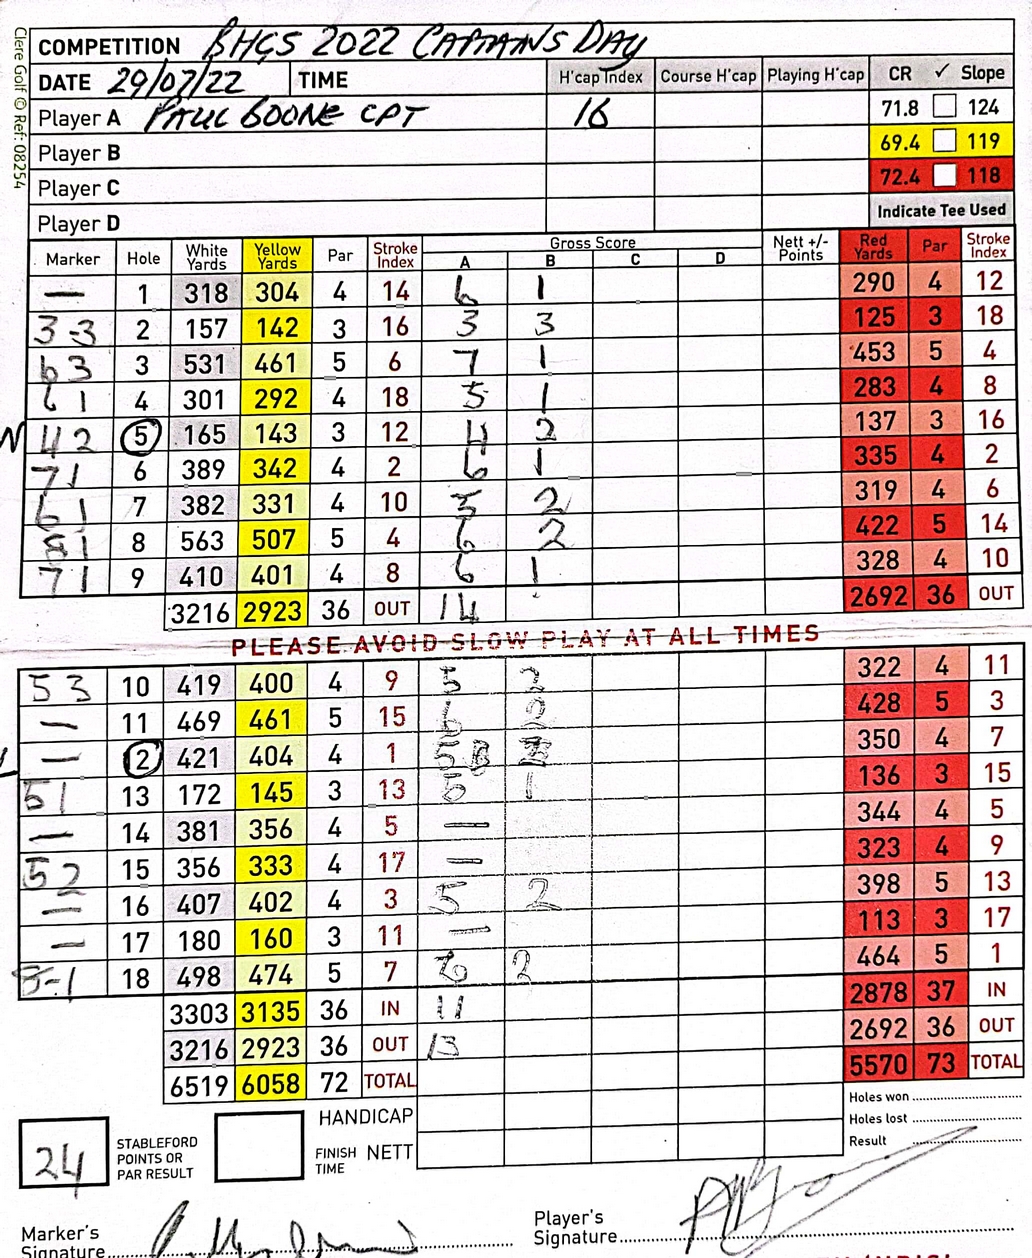 COMPETITION BHGS 2022 CAPTAINS DAY
DATE 29/07/22 TIME H'cap Index Course H'cap Playing H'cap CR ✓ Slope
Player A PAUL BOONE CPT 16 71.8 124
Player B 69.4 119
Player C 72.4 118
Player D Indicate Tee Used
Clere Golf © Ref: 08254
Gross Score
Marker Hole White Yards Yellow Yards Par Stroke Index A B C D Nett +/- Points Red Yards Par Stroke Index
— 1 318 304 4 14 6 1 290 4 12
3-3 2 157 142 3 16 3 3 125 3 18
63 3 531 461 5 6 7 1 453 5 4
61 4 301 292 4 18 5 1 283 4 8
N 42 5 165 143 3 12 4 2 137 3 16
71 6 389 342 4 2 6 1 335 4 2
61 7 382 331 4 10 5 2 319 4 6
81 8 563 507 5 4 6 2 422 5 14
71 9 410 401 4 8 6 1 328 4 10
3216 2923 36 OUT 14 2692 36 OUT
PLEASE AVOID SLOW PLAY AT ALL TIMES
53 10 419 400 4 9 5 2 322 4 11
— 11 469 461 5 15 6 2 428 5 3
L — 12 421 404 4 1 5 350 4 7
51 13 172 145 3 13 5 1 136 3 15
— 14 381 356 4 5 — 344 4 5
52 15 356 333 4 17 — 323 4 9
— 16 407 402 4 3 5 2 398 5 13
— 17 180 160 3 11 — 113 3 17
8-1 18 498 474 5 7 6 2 464 5 1
3303 3135 36 IN 11 2878 37 IN
3216 2923 36 OUT 13 2692 36 OUT
6519 6058 72 TOTAL 5570 73 TOTAL
24 STABLEFORD POINTS OR PAR RESULT HANDICAP Holes won
FINISH TIME NETT Holes lost
Result
Marker's Signature Player's Signature